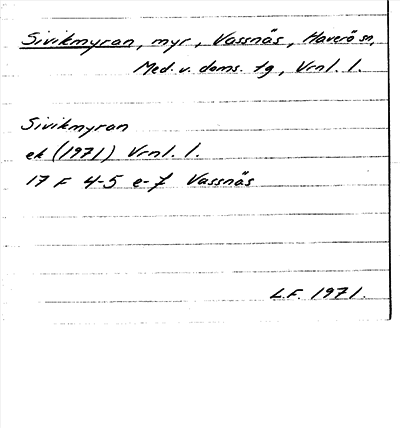 Sivikmyran, myr, Vassnäs, Haverö sn,
Med. v. doms. tg, Vrnl. l.
Sivikmyran
ek (1971) Vrnl. l.
17 F 4-5 e-f Vassnäs
L.F. 1971.